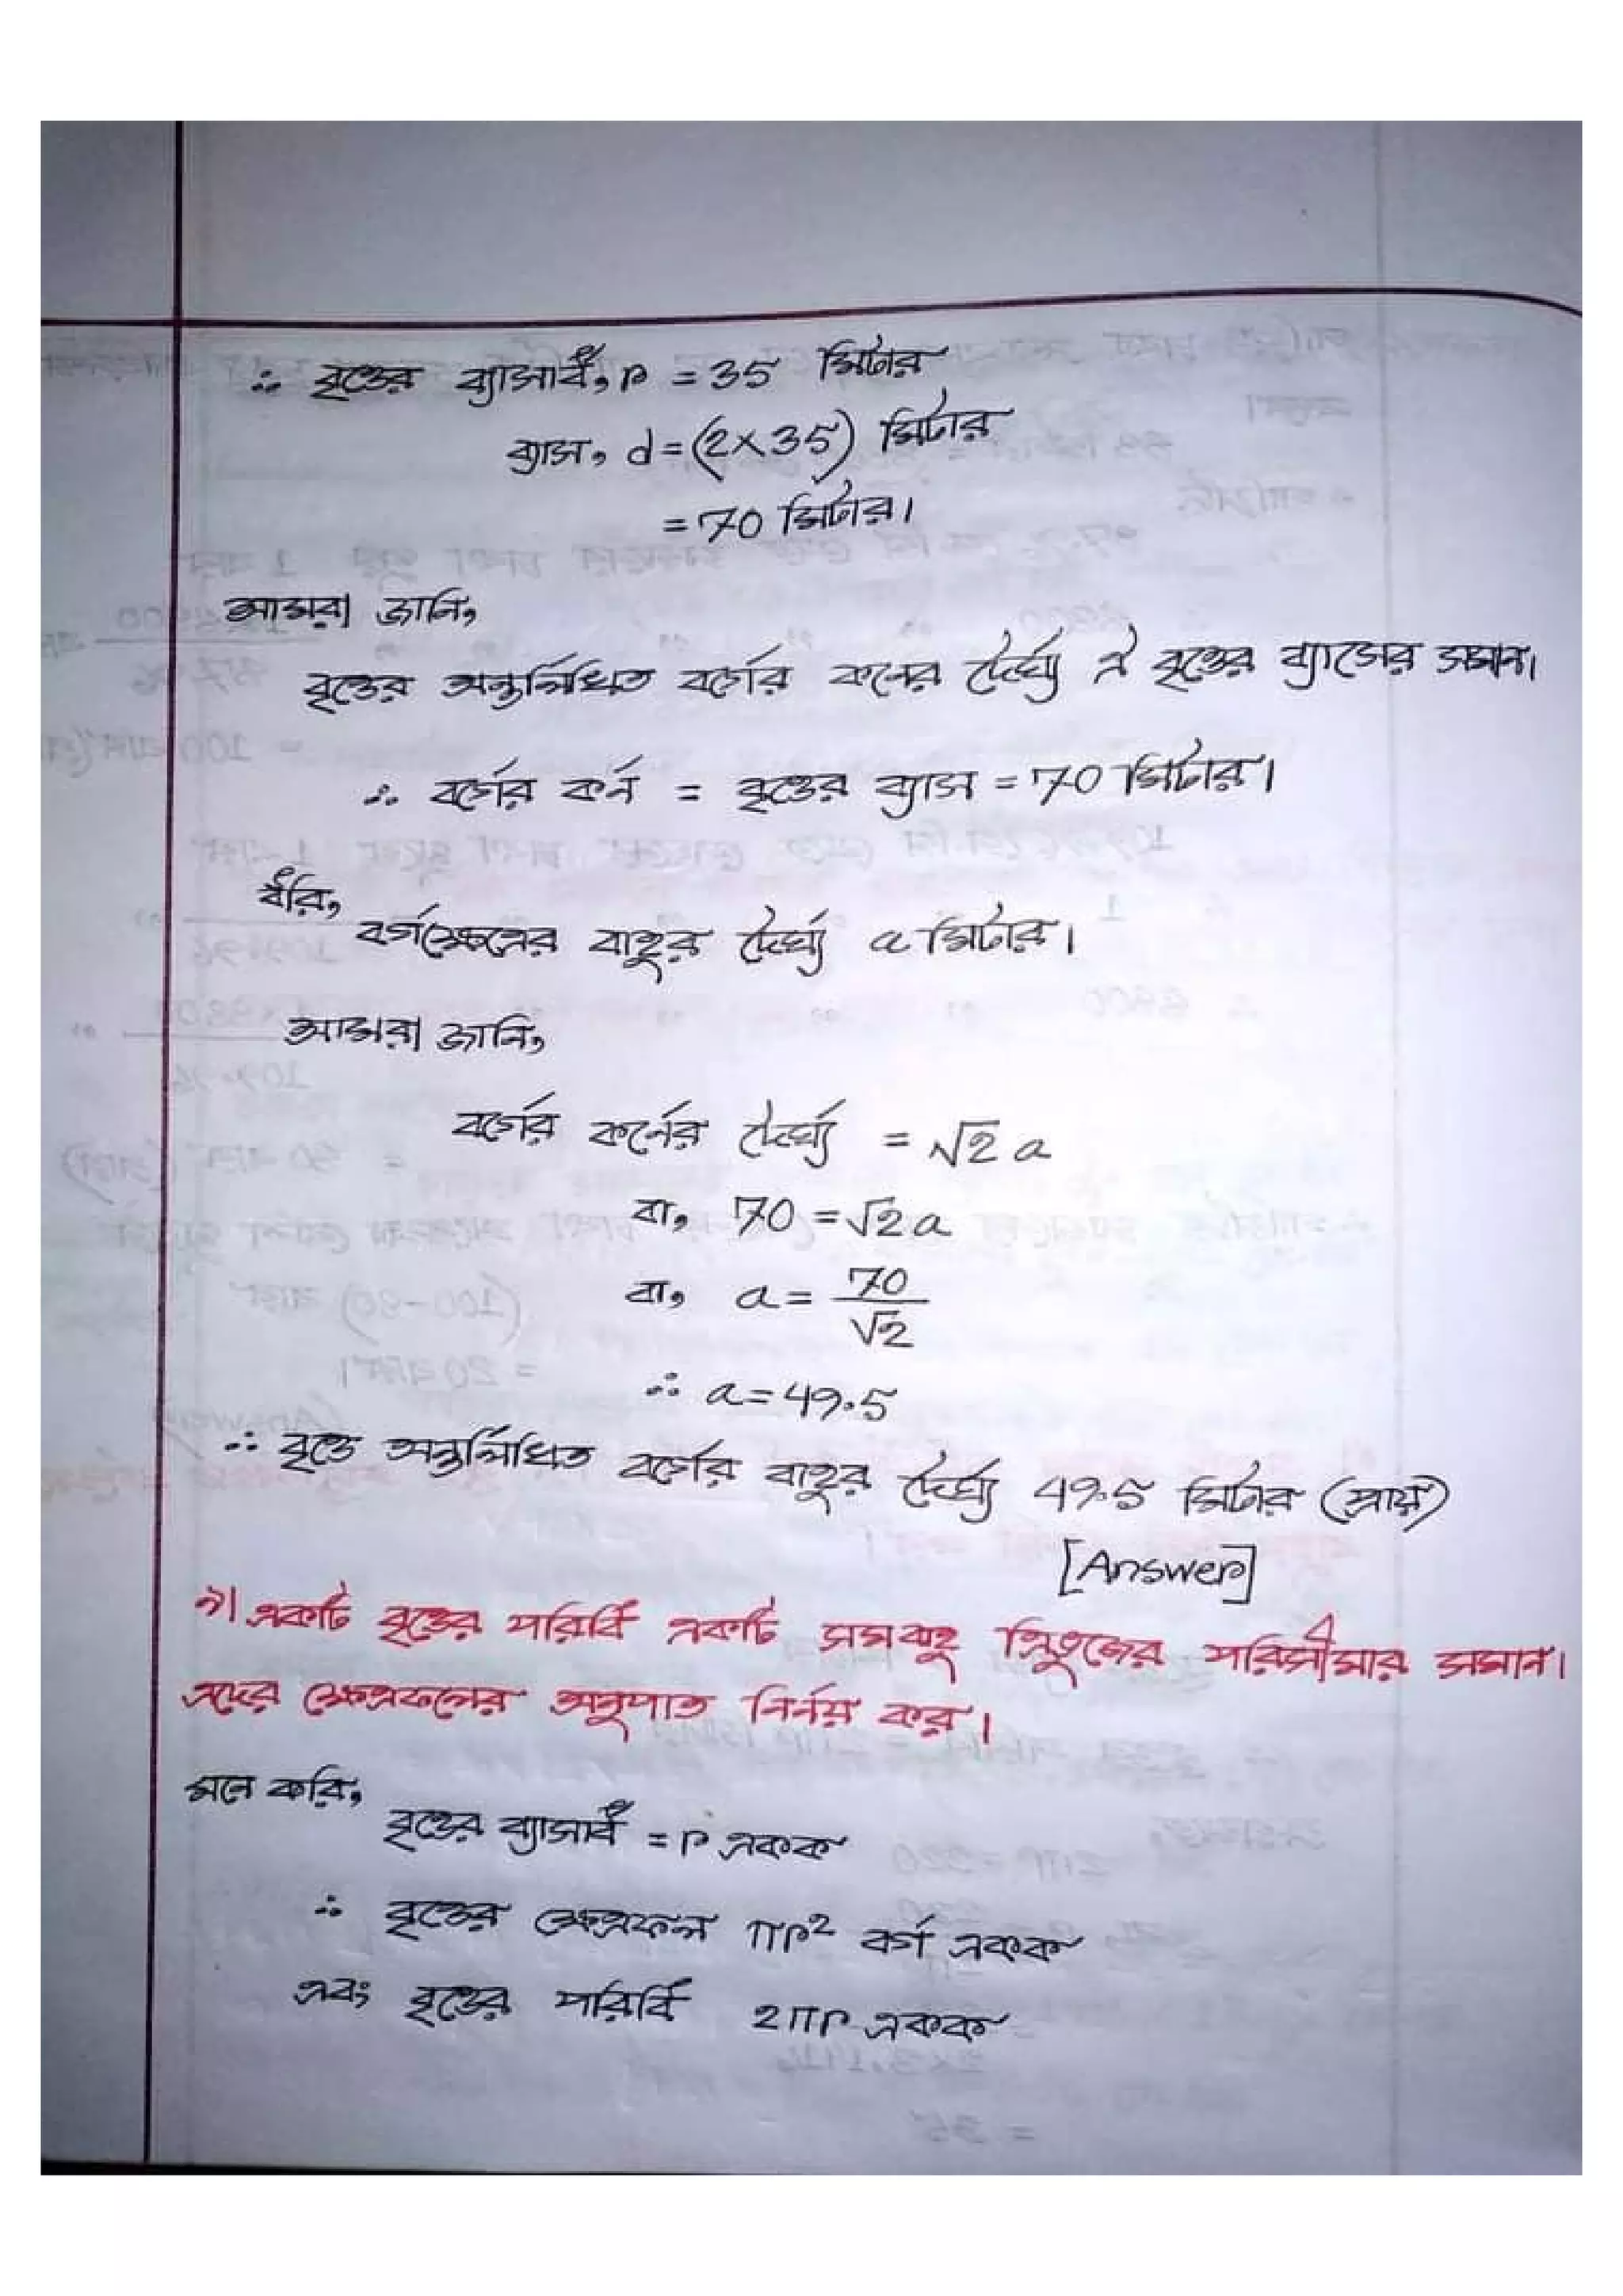 ∴ বৃত্তের ব্যাসার্ধ, r = 35 মিটার
ব্যাস, d = (2×35) মিটার
= 70 মিটার।
আমরা জানি,
বৃত্তের অন্তর্লিখিত বর্গের কনের দৈর্ঘ্য ঐ বৃত্তের ব্যাসের সমান।
∴ বর্গের কর্ন = বৃত্তের ব্যাস = 70 মিটার।
ধরি,
বর্গক্ষেত্রের বাহুর দৈর্ঘ্য a মিটার।
আমরা জানি,
বর্গের কর্নের দৈর্ঘ্য = √2 a
বা, 70 = √2 a
বা, a = 70/√2
∴ a = 49.5
∴ বৃত্তে অন্তর্লিখিত বর্গের বাহুর দৈর্ঘ্য 49.5 মিটার (প্রায়)
[Answer]
৯। একটি বৃত্তের পরিধি একটি সমবাহু ত্রিভুজের পরিসীমার সমান।
এদের ক্ষেত্রফলের অনুপাত নির্নয় কর।
মনে করি,
বৃত্তের ব্যাসার্ধ = r একক
∴ বৃত্তের ক্ষেত্রফল πr² বর্গ একক
এবং বৃত্তের পরিধি 2πr একক